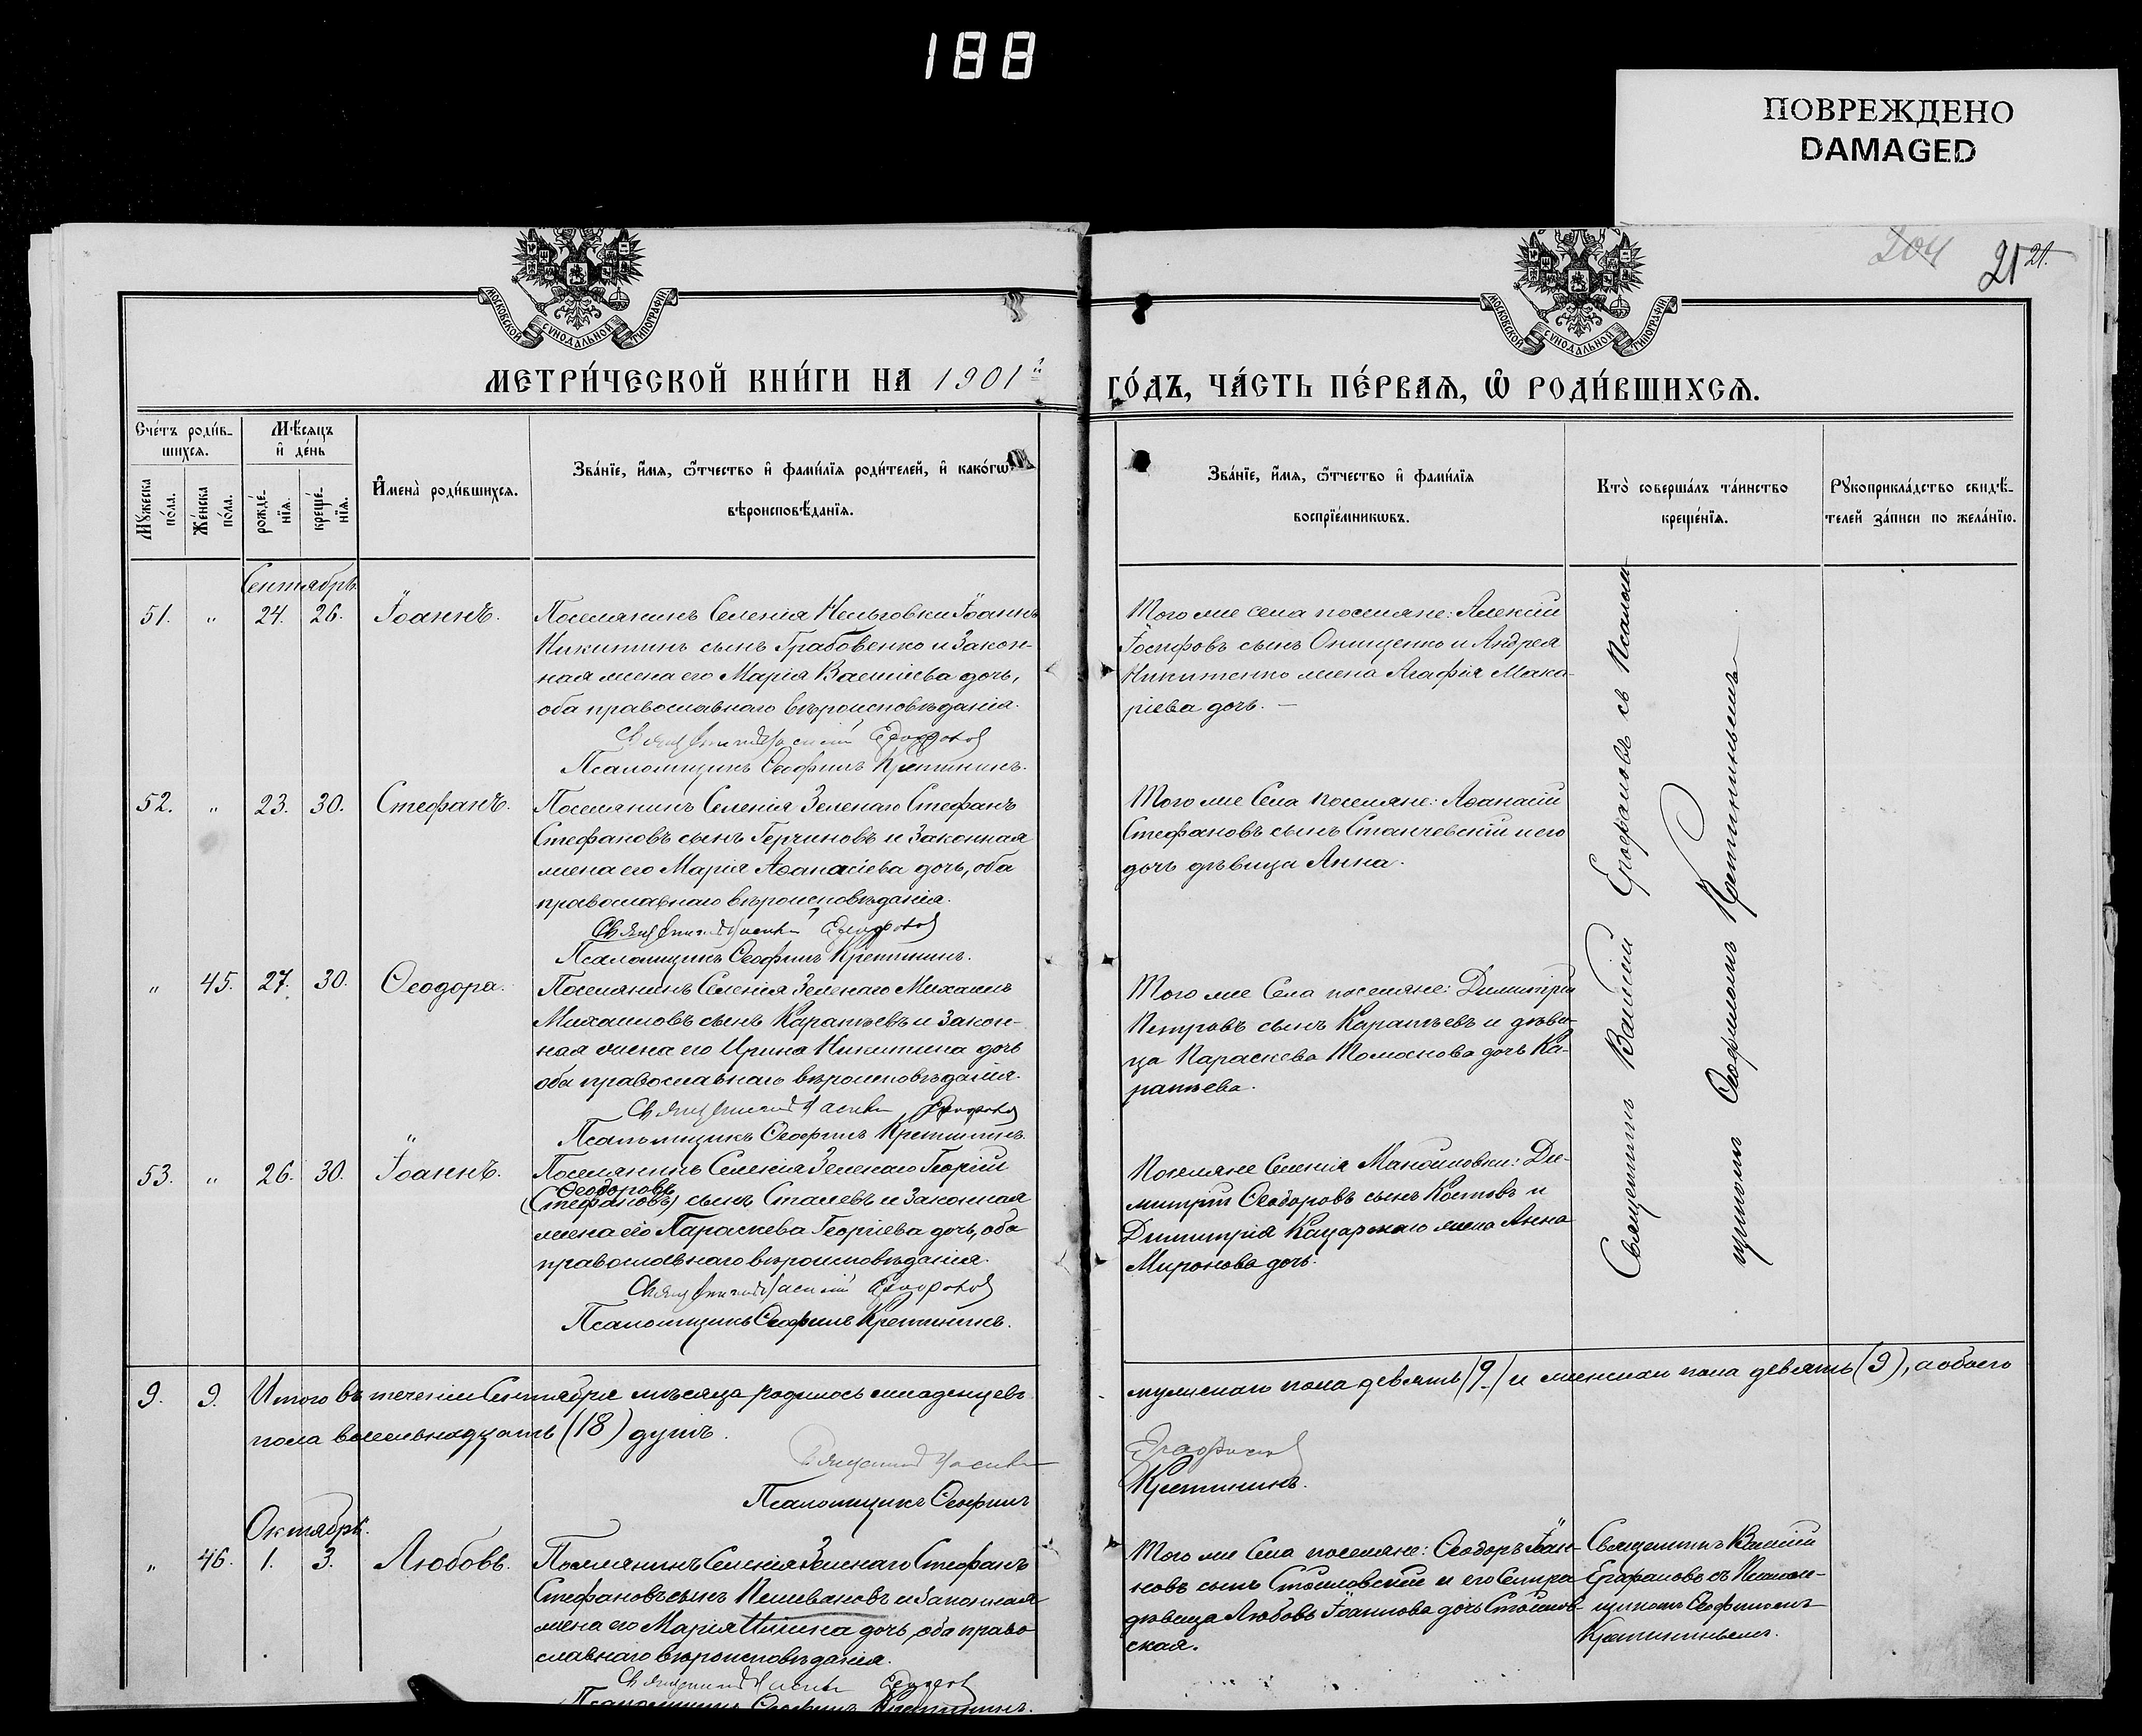 188
ПОВРЕЖДЕНО
DAMAGED
204
21 21.
МОСКОВСКОЙ СѴНОДАЛЬНОЙ ТИПОГРАФІИ
МОСКОВСКОЙ СѴНОДАЛЬНОЙ ТИПОГРАФІИ
МЕТРИ́ЧЕСКОЙ КНИ́ГИ НА 1901й
ГО́ДЪ, ЧА́СТЬ ПЕ́РВАѦ, Ѡ҆ РОДИ́ВШИХСѦ.
Сче́тъ роди́в-
шихсѧ.
Мѣ́сѧцъ
и҆ де́нь
Мꙋ́жеска
по́ла.
Же́нска
по́ла.
рожде́-
нїѧ.
креще́-
нїѧ.
И҆мена̀ роди́вшихсѧ.
Зва́нїе, и҆́мѧ, ѻ҆́тчество и҆ фами́лїѧ роди́телей, и҆ како́гѡ
вѣроисповѣ́данїѧ.
Зва́нїе, и҆́мѧ, ѻ҆́тчество и҆ фами́лїѧ
воспрїе́мникѡвъ.
Кто̀ соверша́лъ та́инство
креще́нїѧ.
Рꙋкоприкла́дство свидѣ́-
телей за́писи по жела́нїю.
Сентябрь
51. " 24. 26. Іоаннъ.
Поселянинъ Селенія Нельговки Іоаннъ
Никитинъ сынъ Грабовенко и закон-
ная жена его Марія Василіева дочь,
оба православнаго вѣроисповѣданія.
Священникъ Василій Ерофаловъ
Псаломщикъ Ѳеофилъ Кретининъ.
Того же села поселяне: Алексій
Іосифовъ сынъ Онищенко и Андрея
Никитенко жена Агафія Мака-
ріева дочь. —
52. " 23. 30. Стефанъ.
Поселянинъ Селенія Зеленаго Стефанъ
Стефановъ сынъ Герчиновъ и законная
жена его Марія Аѳанасіева дочь, оба
православнаго вѣроисповѣданія.
Священникъ Василій Ерофаловъ
Псаломщикъ Ѳеофилъ Кретининъ.
Того же Села поселяне: Аѳанасій
Стефановъ сынъ Станчевскій и его
дочь дѣвица Анна.
" 45. 27. 30. Ѳеодора.
Поселянинъ Селенія Зеленаго Михаилъ
Михаиловъ сынъ Каратѣевъ и закон-
ная жена его Ирина Никитина дочь
оба православнаго вѣроисповѣданія.
Священникъ Василій Ерофаловъ
Псаломщикъ Ѳеофилъ Кретининъ.
Того же Села поселяне: Димитрій
Петровъ сынъ Каратѣевъ и дѣви-
ца Параскева Томасова дочь Ка-
ратѣева.
53. " 26. 30. Іоаннъ.
Поселянинъ Селенія Зеленаго Георгій
Ѳеодоровъ
(Стефановъ) сынъ Сталевъ и законная
жена его Параскева Георгіева дочь, оба
православнаго вѣроисповѣданія.
Священникъ Василій Ерофаловъ
Псаломщикъ Ѳеофилъ Кретининъ.
Поселяне Селенія Мануиловки: Ди-
митрій Ѳеодоровъ сынъ Костовъ и
Димитрія Кацарскаго жена Анна
Миронова дочь.
Священникъ Василій Ерофаловъ съ Псалом-
щикомъ Ѳеофиломъ Кретининымъ
9. 9. Итого въ теченіи Сентября мѣсяца родилось младенцевъ
мужскаго пола девять (9.) и женскаго пола девять (9), а обоего
пола восемьнадцать (18) душъ.
Священникъ Василій
Ерофаловъ
Псаломщикъ Ѳеофилъ
Кретининъ.
Октябрь.
" 46. 1. 3. Любовь.
Поселянинъ Селенія Зеленаго Стефанъ
Стефановъ сынъ Пеливановъ и законная
жена его Марія Иліина дочь, оба право-
славнаго вѣроисповѣданія.
Священникъ Василій Ерофаловъ
Псаломщикъ Ѳеофилъ Кретининъ.
Того же Села поселяне: Ѳеодоръ Іоан-
новъ сынъ Стоиловскій и его Сестра
дѣвица Любовь Іоаннова дочь Стоилов-
ская.
Священникъ Василій
Ерофаловъ съ Псалом-
щикомъ Ѳеофиломъ
Кретининымъ.